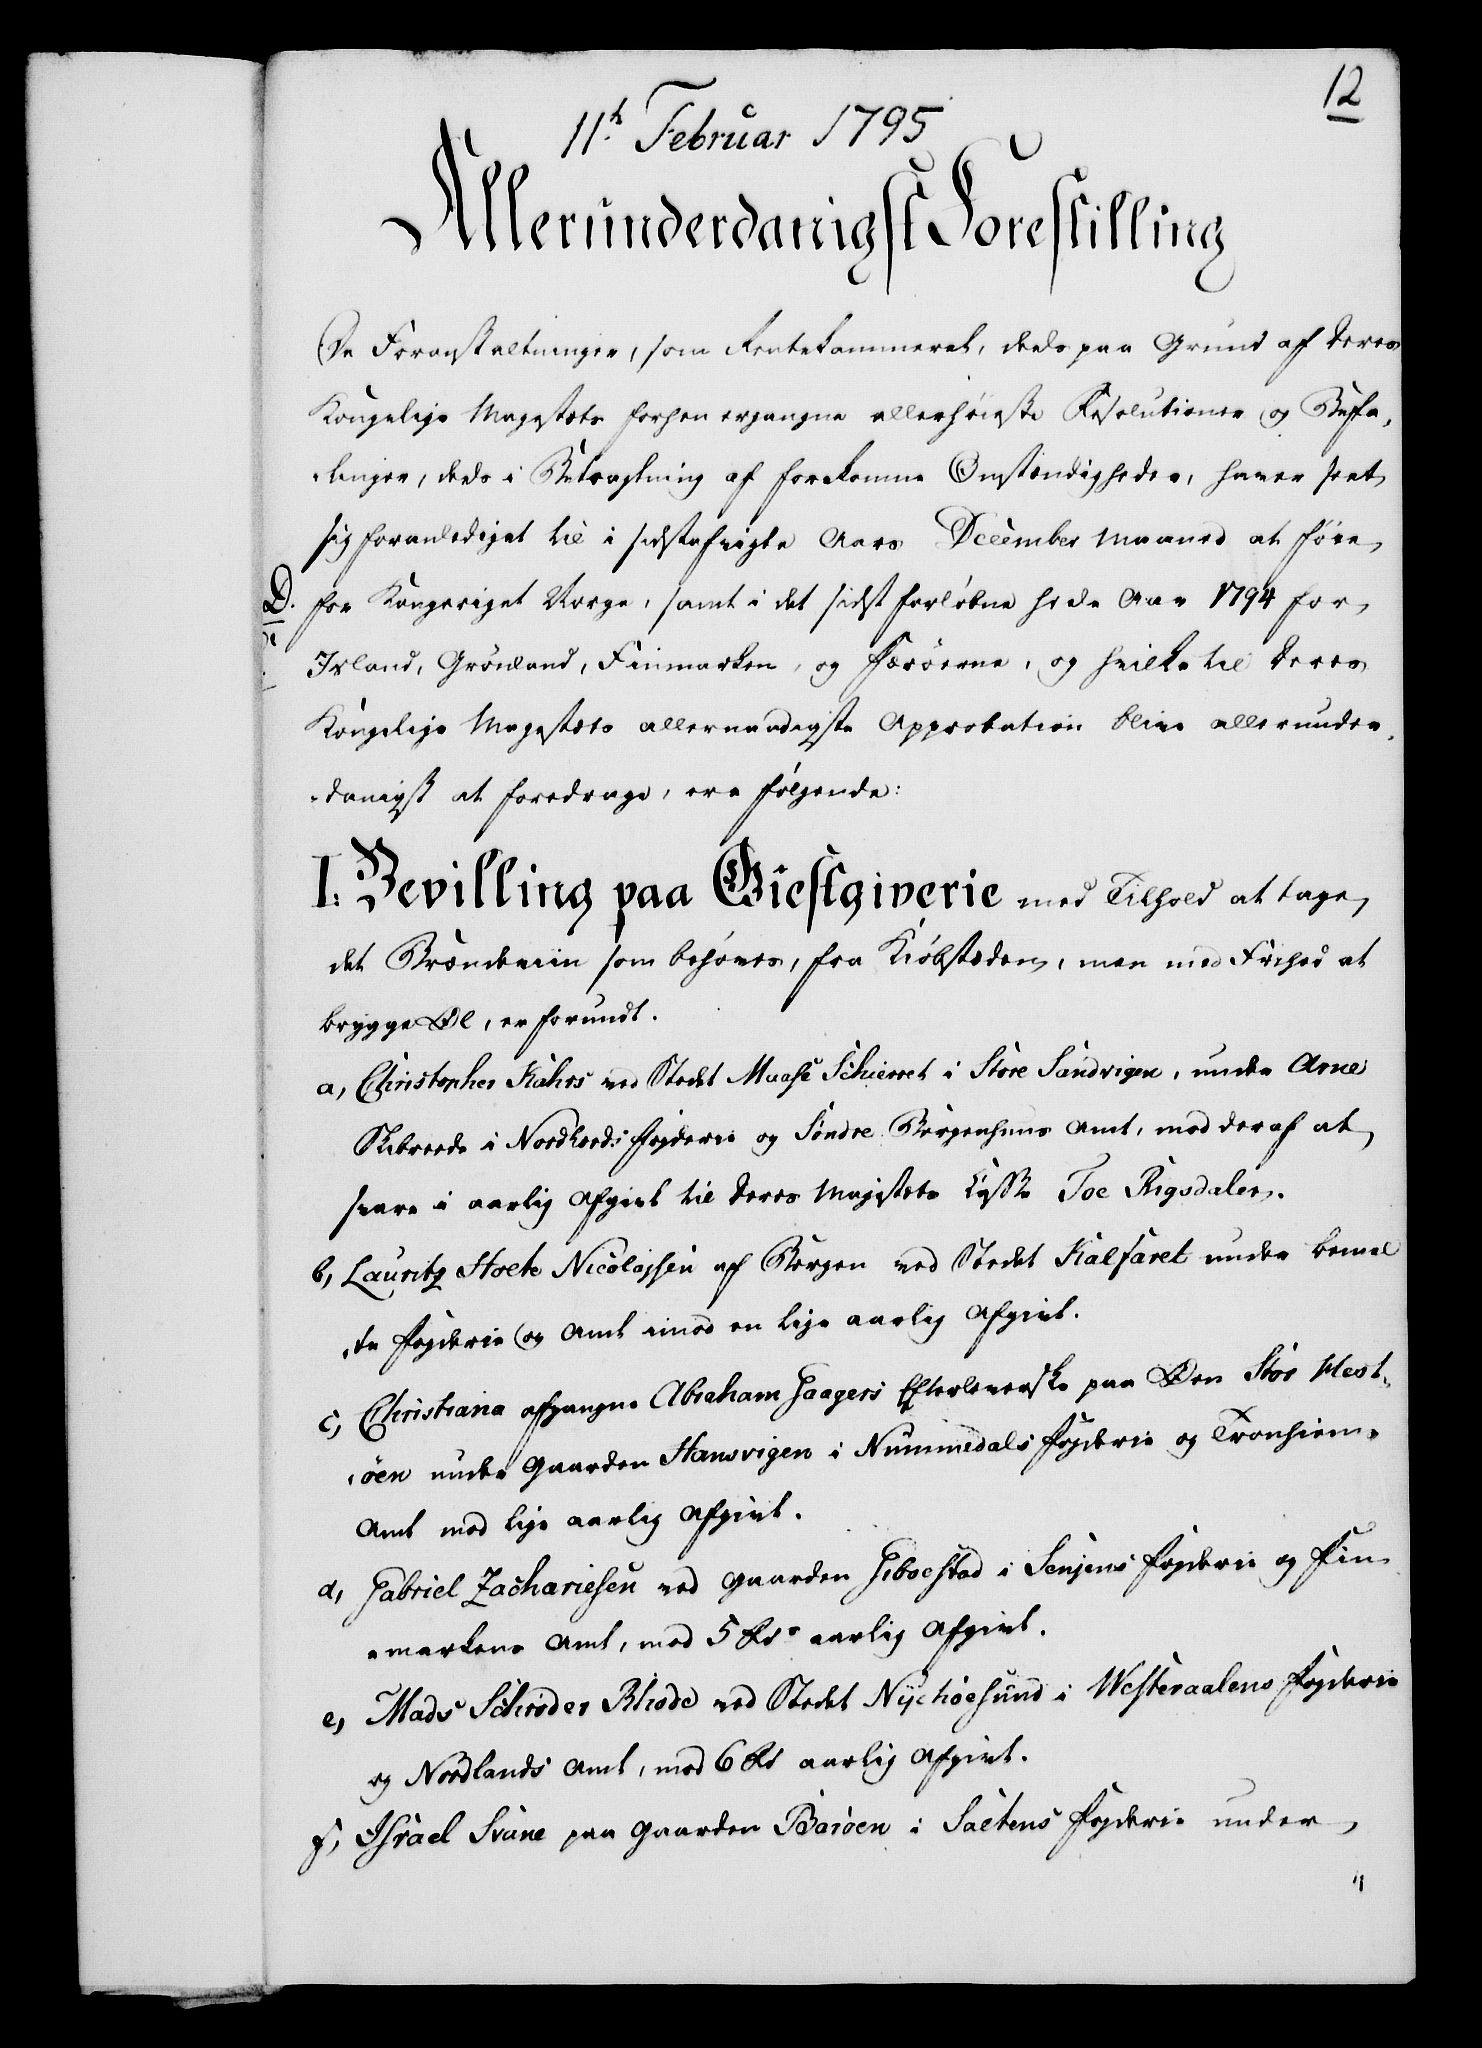 12
11te Februar 1795
Allerunderdanigst Forestilling
De Foranstaltninger, som Rentekammeret, deels paa Grund af Deres
Kongelige Majestæts forhen ergangne allerhöieste Resolutioner og Befa-
-linger, deels i Betragtning af forekomne Omstændigheder, haver seet
sig foranlediget til i sidstafvigte Aars December Maaned at föie
D. for Kongeriget Norge, samt i det sidst forløbne hele Aar 1794 for
Island, Grönland, Finmarken, og Færöerne, og hvilke til Deres
Kongelige Majestæts allernaadigste Approbation blive allerunder-
-danigst at foredrage, ere fölgende:
I. Bevilling paa Giestgiverie med Tilhold at tage
det Brændeviin som behöves, fra Kiöbstæden, men med Frihed at
brygge Øl, er forundt.
a, Christopher Kahrs ved Stedet Maase Schieret i Store Sandvigen, under Arne
Skibrede i Nordhords Fogderie og Söndre Bergenhuus Amt, mod deraf at
svare i aarlig Afgivt til Deres Majestæts Casse Toe Rigsdaler.
b, Lauritz Holck Nicolajsen af Bergen ved Stedet Kalfaret under bemel
-te Fogderie og Amt imod en lige aarlig Afgivt.
c, Christiana afgangne Abraham Haagers Efterleverske paa Øen Stor Flest-
-öen under Gaarden Hansvigen i Nummedals Fogderie og Tronhiems
Amt mod lige aarlig Afgivt.
d, Gabriel Zachariesen ved Gaarden Giboestad i Senjens Fogderie og Fin-
-markens Amt, mod 5 Rd. aarlig Afgivt.
e, Mads Schröder Rhode ved Stedet Nyehöesund i Westeraalens Fogderie
og Nordlands Amt, mod 6 Rd aarlig Afgivt.
f, Israel Svane paa Gaarden Baröen i Saltens Fogderie under